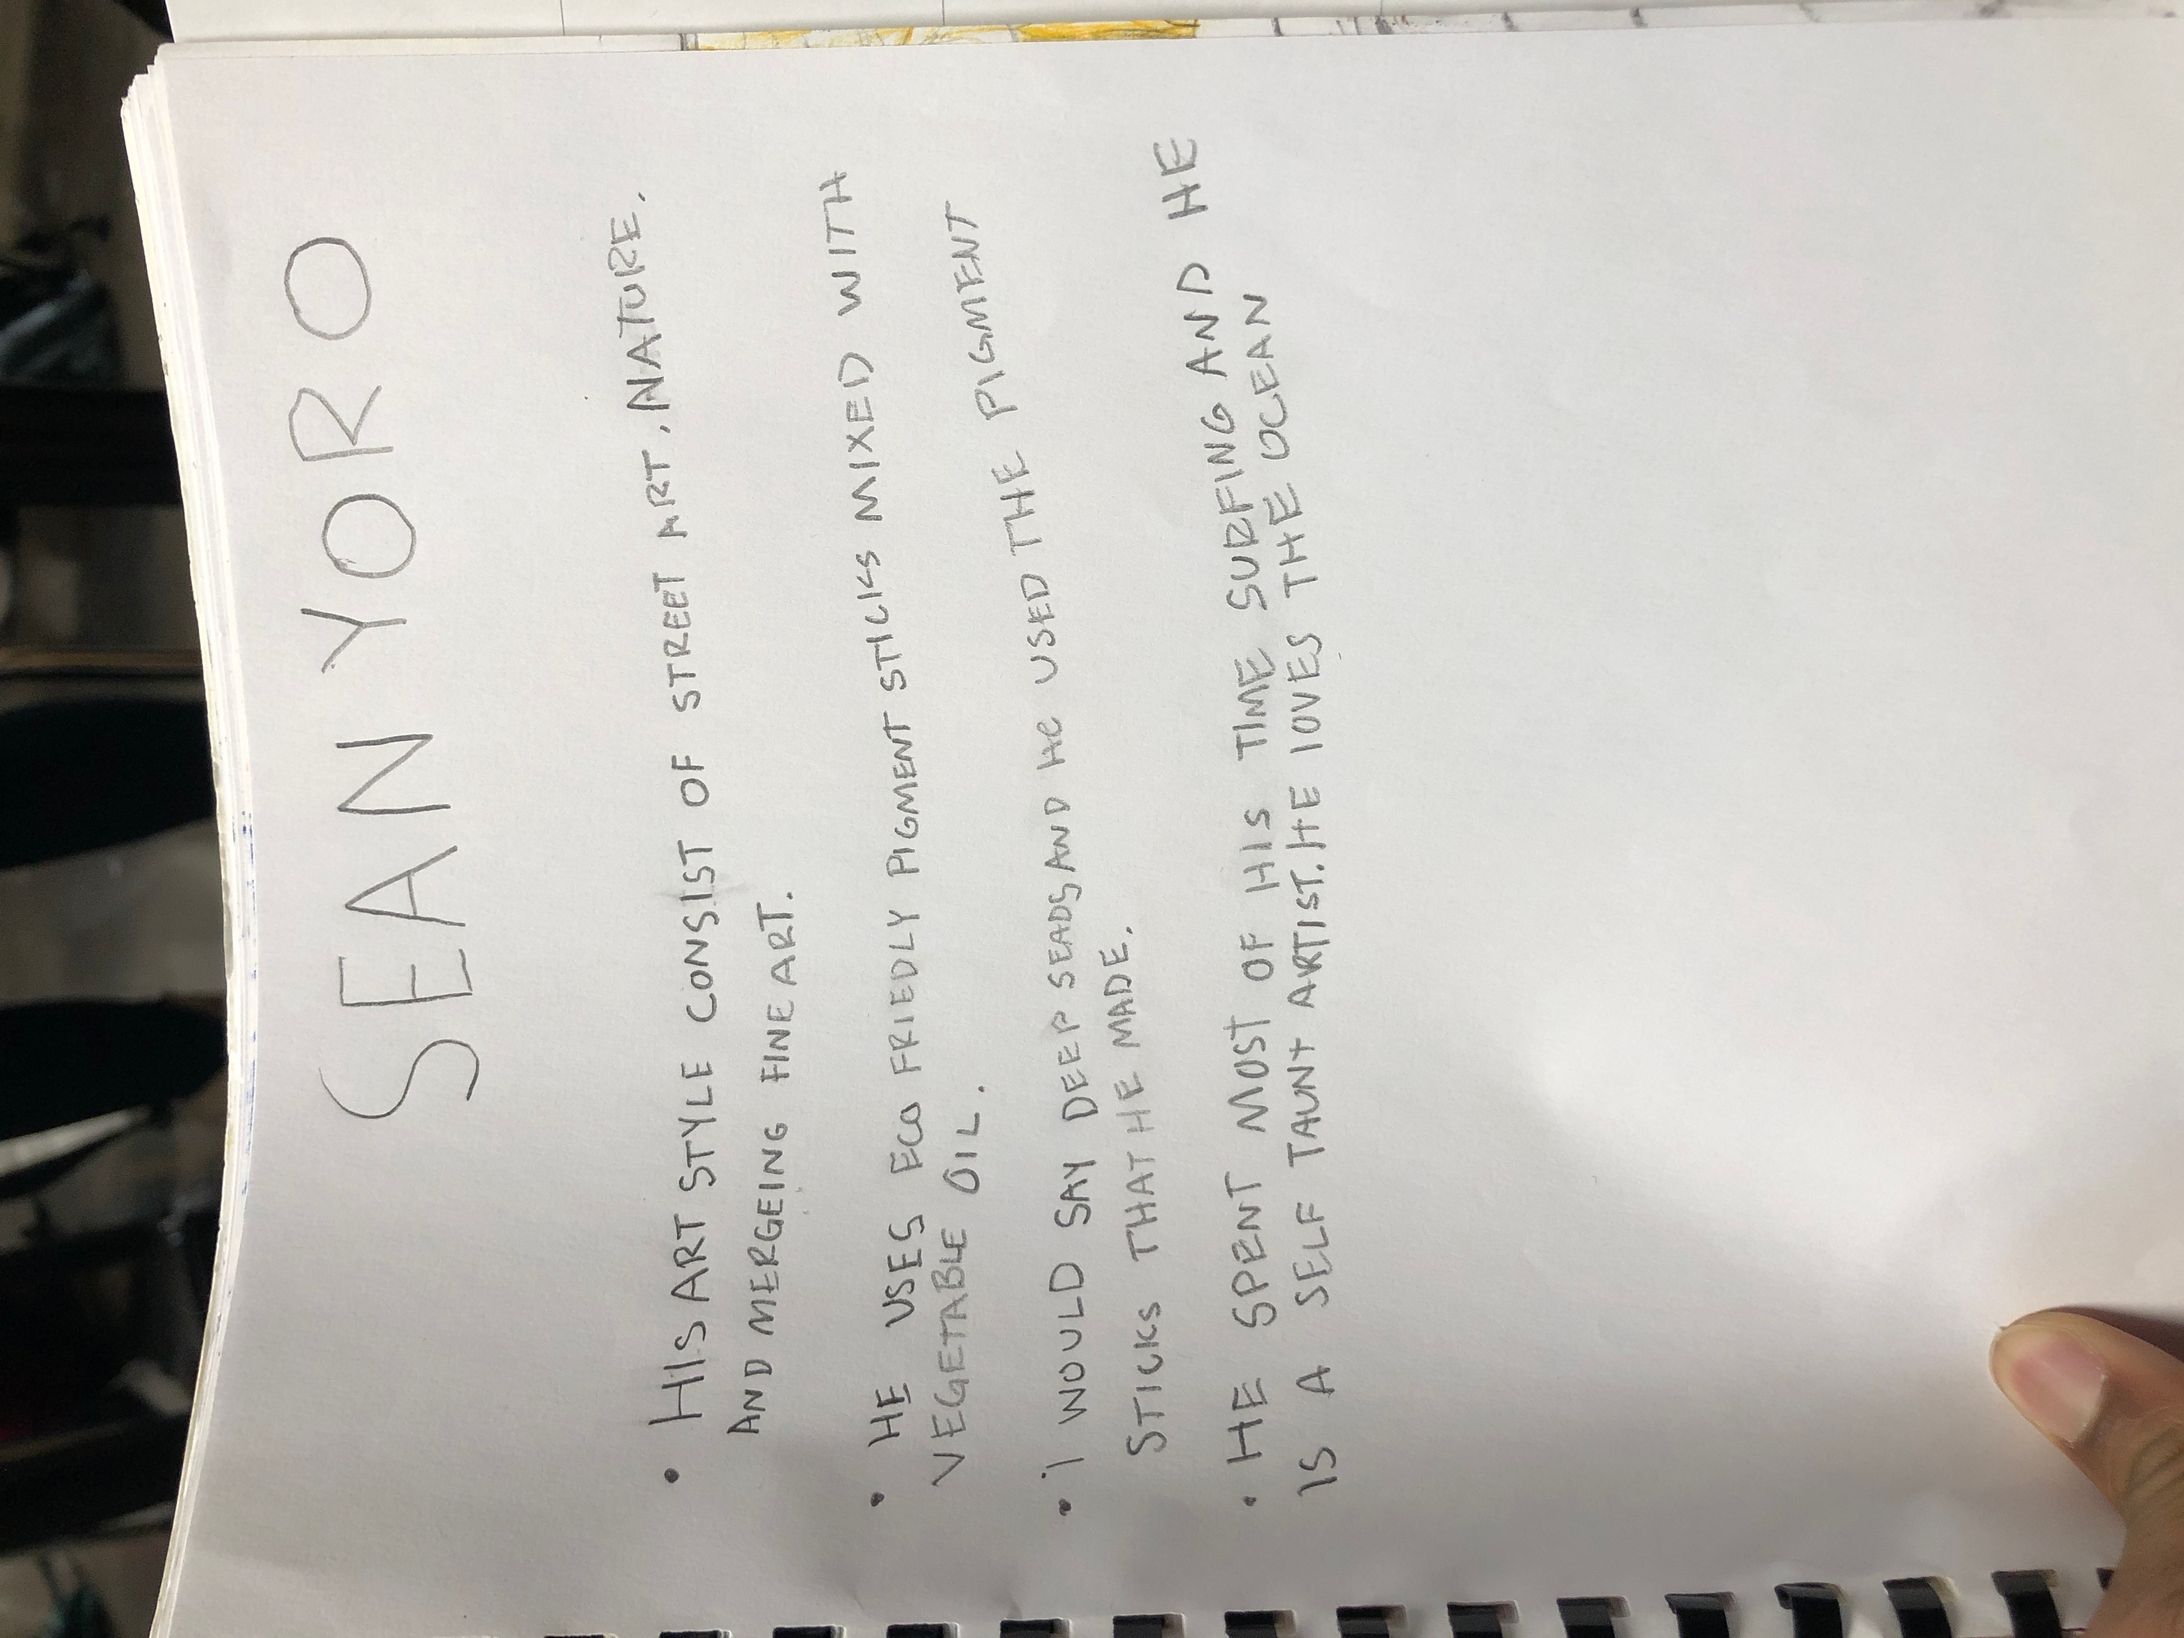 SEAN YORO
• HIS ART STYLE CONSIST OF STREET ART, NATURE,
AND MERGEING FINE ART.
• HE USES ECO FRIEDLY PIGMENT STICKS MIXED WITH
VEGETABLE OIL.
• I WOULD SAY DEEP SEADS AND He USED THE PIGMENT
STICKS THAT HE MADE.
• HE SPENT MOST OF HIS TIME SURFING AND HE
IS A SELF TAUNT ARTIST. HE lOVES THE OCEAN